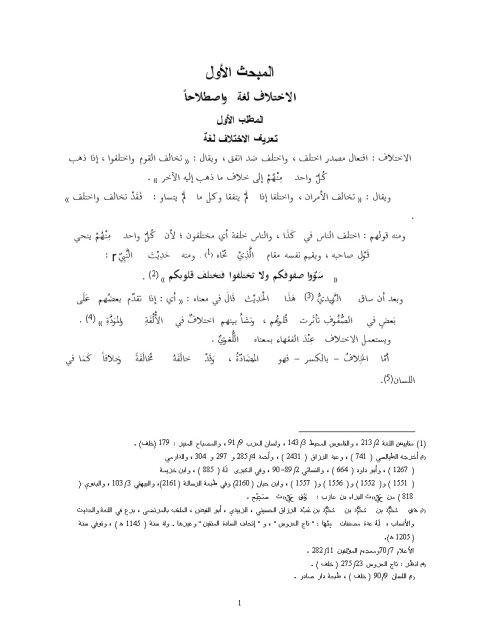 المبحث الأول
الاختلاف لغة واصطلاحاً
المطلب الأول
تعريف الاختلاف لغة
الاختلاف : افتعال مصدر اختلف ، واختلف ضد اتفق ، ويقال : « تخالف القوم واختلفوا ، إذا ذهب
كُلّ واحد مِنْهُمْ إلى خلاف ما ذهب إليه الآخر » .
ويقال : « تخالف الأمران ، واختلفا إذا لَمْ يتفقا وكل ما لَمْ يتساو : فَقَدْ تخالف واختلف »
.
ومنه قولهم : اختلف الناس في كَذَا ، والناس خلفة أي مختلفون ؛ لأن كُلّ واحد مِنْهُمْ ينحي
قَوْل صاحبه ، ويقيم نفسه مقام الَّذِيْ نحّاه (1). ومنه حَدِيْث النَّبِيّ r :
« سَوُّوا صفوفكم ولا تختلفوا فتختلف قلوبكم » (2) .
وبعد أن ساق الزَّبِيديُّ (3) هَذَا الْحَدِيْث قَالَ في معناه : « أي : إذا تقدّم بعضُهم عَلَى
بَعضٍ في الصُّفُوفِ تأثرت قُلوبُهم ، ونشأ بينهم اختلافٌ في الأُلْفَةِ والمَوَدَّةِ » (4) .
ويستعمل الاختلاف عِنْدَ الفقهاء بمعناه اللُّغَوِيّ .
أمّا الخِلافُ – بالكسر – فهو المُضَادَّةُ ، وَقَدْ خالَفَهُ مُخالَفَةً وَخِلافاً كَمَا في
اللسان(5).
(1) مقاييس اللغة 213/2 ، والقاموس المحيط 143/3 ، ولسان العرب 91/9 ، والمصباح المنير : 179 (خلف) .
أخرجه الطيالسي ( 741 ) ، وعبد الرزاق ( 2431 ) ، وأحمد 285/4 و 297 و 304 ، والدارمي
( 1267 ) ، وأبو داود ( 664 ) ، والنسائي 89/2–90 ، وفي الكبرى لَهُ ( 885 ) ، وابن خزيمة
( 1551 ) و( 1552 ) و( 1556 ) و( 1557 ) ، وابن حبان ( 2160) وفي طبعة الرسالة (2161)، والبيهقي 103/3 ، والبغوي (
818 ) من حَدِيْث البراء بن عازب : وَهُوَ حَدِيْث صَحِيْح .
هُوَ مُحَمَّد بن مُحَمَّد بن مُحَمَّد بن عَبْد الرزاق الحسيني ، الزبيدي ، أبو الفيض ، الملقب بالمرتضى ، برع في اللغة والحديث
والأنساب ، لَهُ عدة مصنفات مِنْهَا : " تاج العروس " ، و " إتحاف السادة المتقين " وغيرها . ولد سنة ( 1145 ه ) ، وتوفي سنة
( 1205 ه).
الأعلام 70/7 ومعجم المؤلفين 282/11 .
انظر : تاج العروس 275/23 ( خلف ) .
اللسان 90/9 ( خلف ) ، طبعة دار صادر .
1